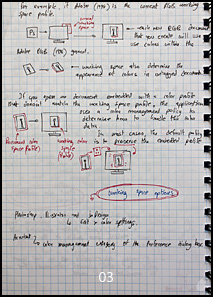 For example, if Adobe RGB (1998) is the current RGB working
space profile.
current
working
space
Ps
→ each new RGB document
that you create will use
use colors within the
Adobe RGB (1998) gamut.
→ working space also determine the
appearance of colors in untagged documents
If you open a document embedded with a color profile
that doesn't match the working space profile, the application
uses a color management policy to
determine how to handle the color
data.
In most cases, the default policy
is to preserve the embedded profile
Document color
space (profile)
working color
space
(profile)
working space options
Photoshop, Illustrator and InDesign
↳ Edit > color settings.
Acrobat
↳ color management category of the Preferences dialog box
03